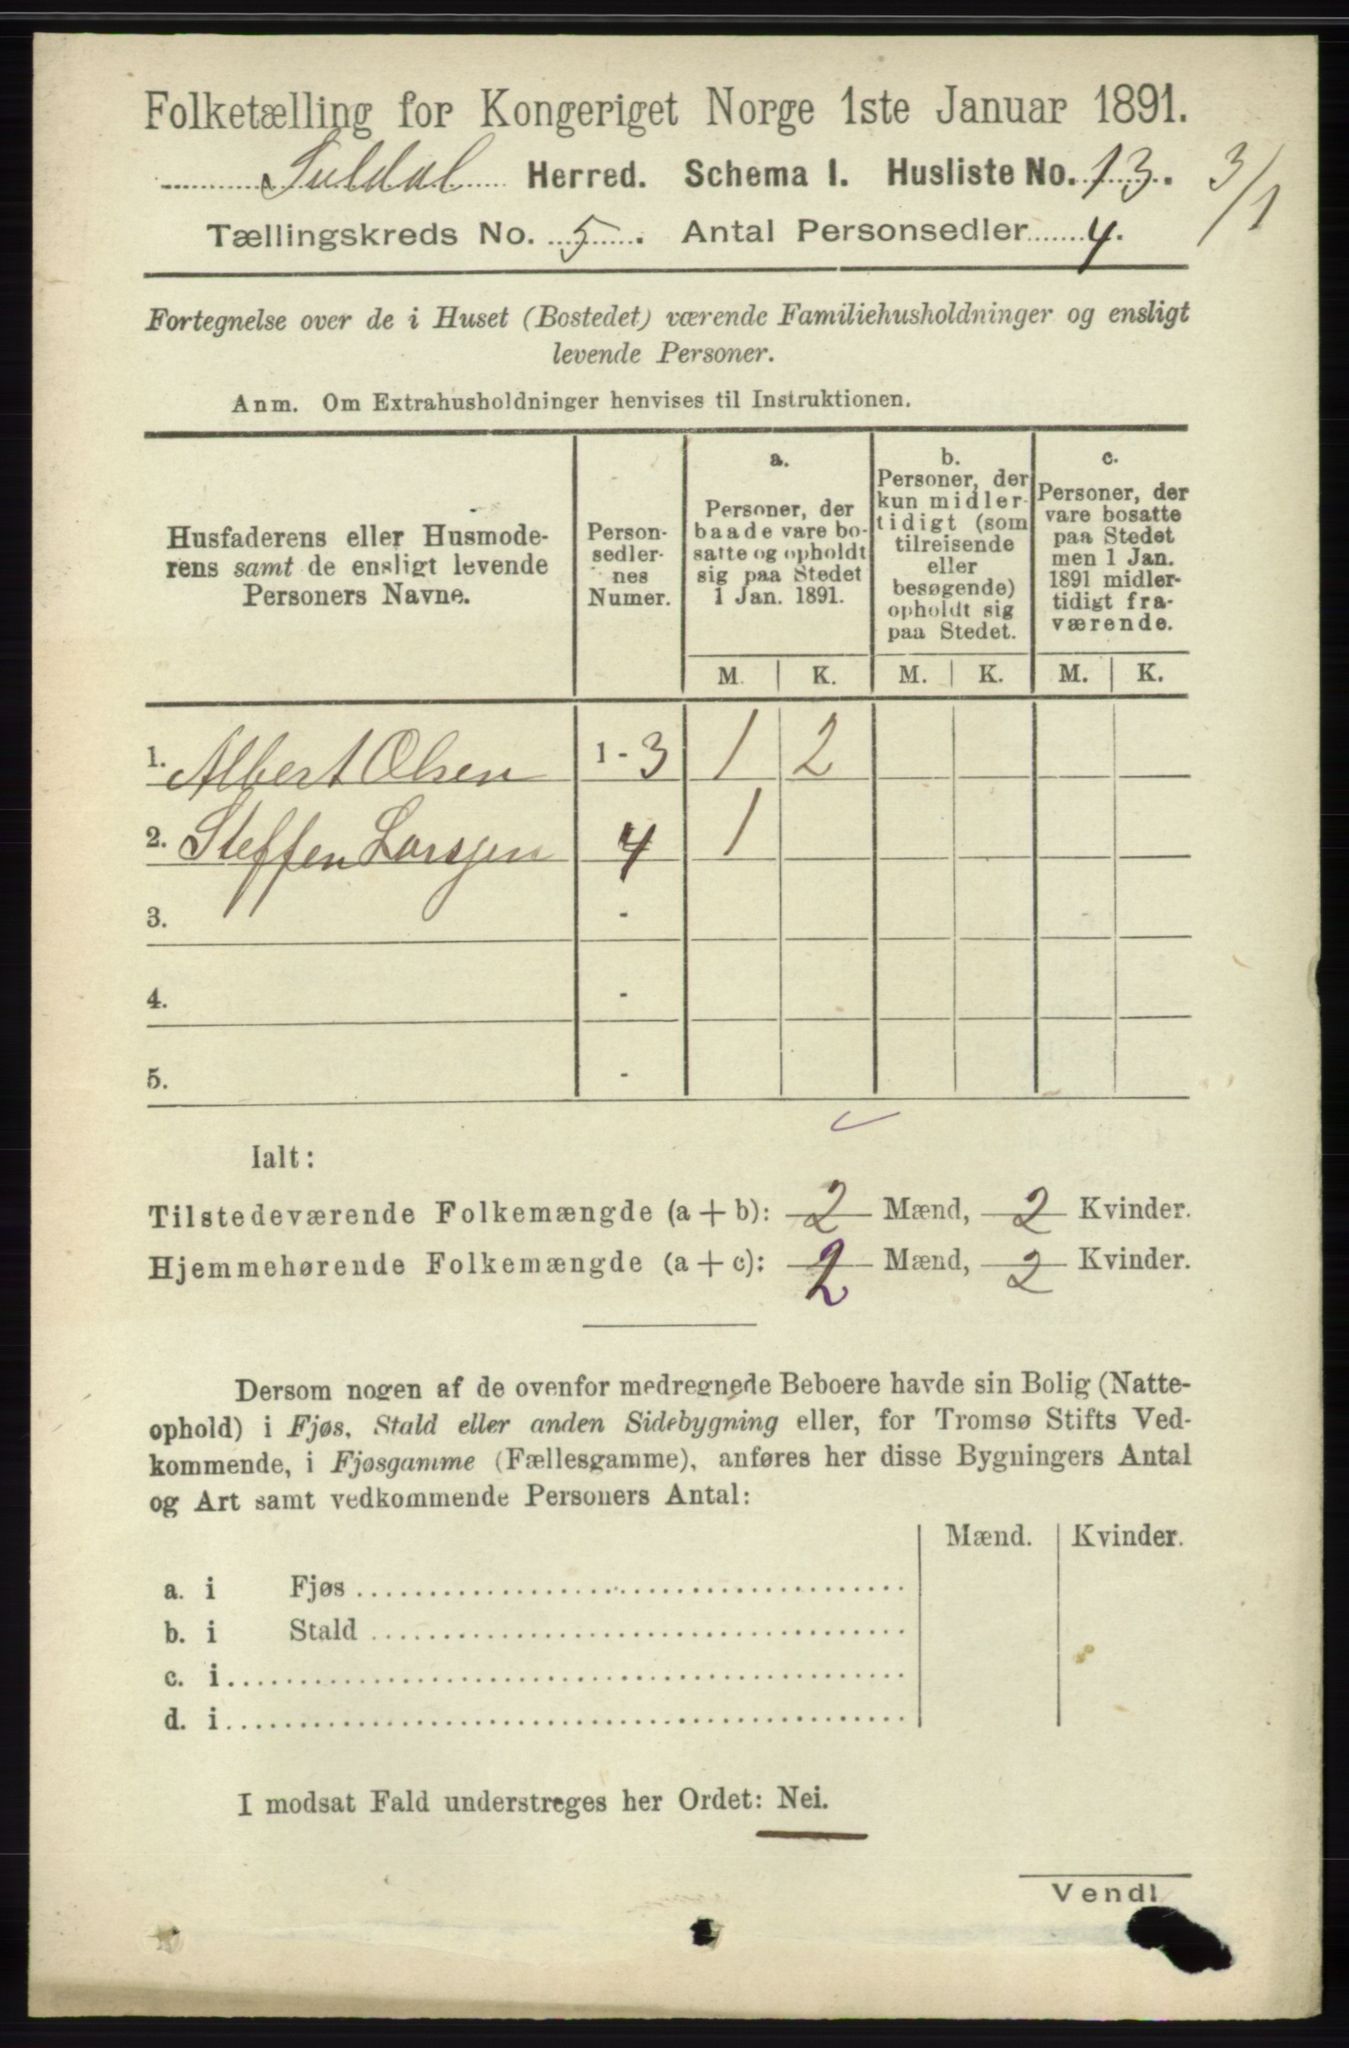 Folketælling for Kongeriget Norge 1ste Januar 1891.
Suldal Herred. Schema I. Husliste No. 13. 3/1
Tællingskreds No. 5. Antal Personsedler 4.
Fortegnelse over de i Huset (Bostedet) værende Familiehusholdninger og ensligt
levende Personer.
Anm. Om Extrahusholdninger henvises til Instruktionen.
Husfaderens eller Husmode-
rens samt de ensligt levende
Personers Navne.
Person-
sedler-
nes
Numer.
a.
Personer, der
baade vare bo-
satte og opholdt
sig paa Stedet
1 Jan. 1891.
b.
Personer, der
kun midler-
tidigt (som
tilreisende
eller
besøgende)
opholdt sig
paa Stedet.
c.
Personer, der
vare bosatte
paa Stedet
men 1 Jan.
1891 midler-
tidigt fra-
værende.
M. K. M. K. M. K.
1. Albert Olsen 1 - 3 1 2
2. Steffen Larsen 4 1
3. -
4. -
5. -
Ialt:
Tilstedeværende Folkemængde (a + b): 2 Mænd, 2 Kvinder.
Hjemmehørende Folkemængde (a + c): 2 Mænd, 2 Kvinder.
Dersom nogen af de ovenfor medregnede Beboere havde sin Bolig (Natte-
ophold) i Fjøs, Stald eller anden Sidebygning eller, for Tromsø Stifts Ved-
kommende, i Fjøsgamme (Fællesgamme), anføres her disse Bygningers Antal
og Art samt vedkommende Personers Antal:
Mænd. Kvinder.
a. i Fjøs
b. i Stald
c. i
d. i
I modsat Fald understreges her Ordet: Nei.
Vend!